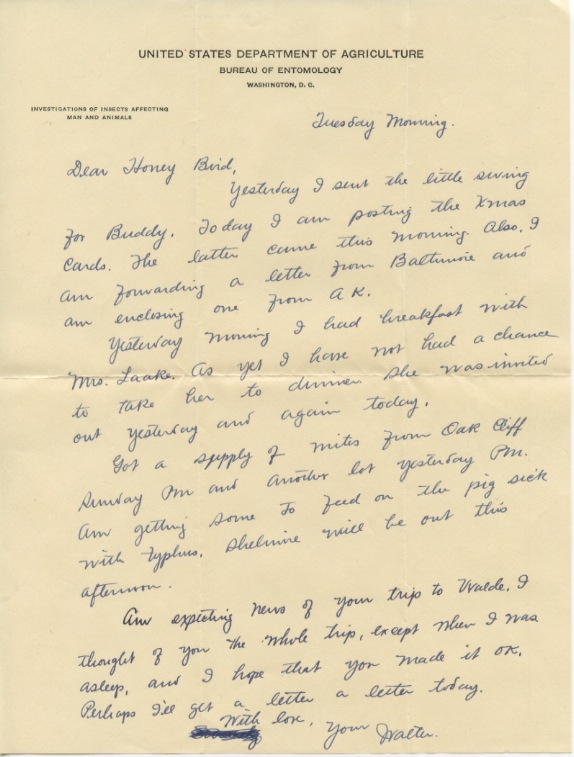 UNITED STATES DEPARTMENT OF AGRICULTURE
BUREAU OF ENTOMOLOGY
WASHINGTON, D. C.
INVESTIGATIONS OF INSECTS AFFECTING
MAN AND ANIMALS
Tuesday Morning.
Dear Honey Bird,
Yesterday I sent the little swing
for Buddy. Today I am posting the Xmas
cards. The latter came this morning. Also, I
am forwarding a letter from Baltimore and
am enclosing one from A K.
Yesterday morning I had breakfast with
Mrs. Laake. As yet I have not had a chance
to take her to dinner. She was invited
out yesterday and again today.
Got a supply of mites from Oak Cliff
Sunday PM and another lot yesterday PM.
Am getting some to feed on the pig sick
with typhus. Shelmire will be out this
afternoon.
Am expecting news of your trip to Uvalde. I
thought of you the whole trip, except when I was
asleep, and I hope that you made it OK.
Perhaps I'll get a letter a letter today.
With love,
Your Walter.